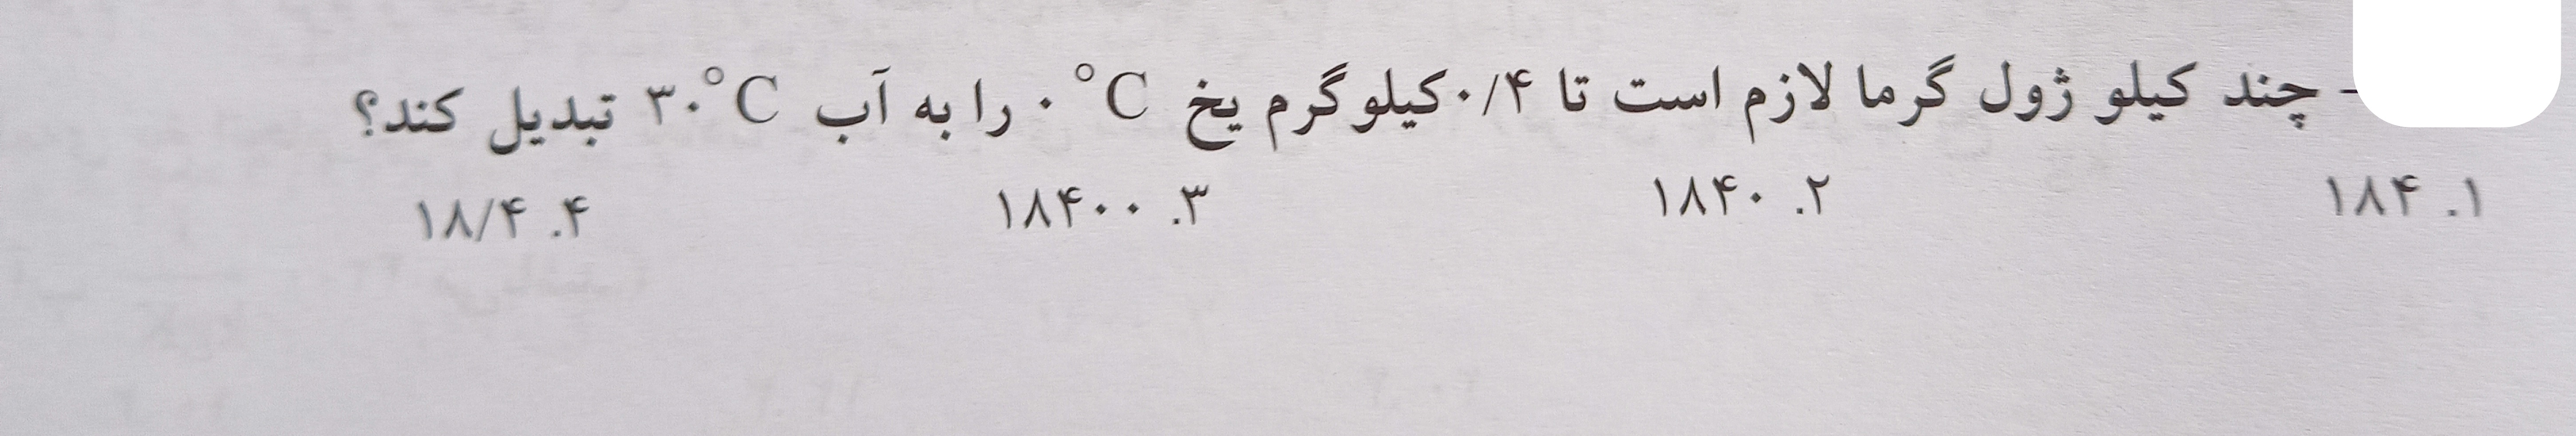 - چند کیلو ژول گرما لازم است تا ۰/۴ کیلوگرم یخ ۰ °C را به آب ۳۰°C تبدیل کند؟
۱. ۱۸۴ ۲. ۱۸۴۰ ۳. ۱۸۴۰۰ ۴. ۱۸/۴